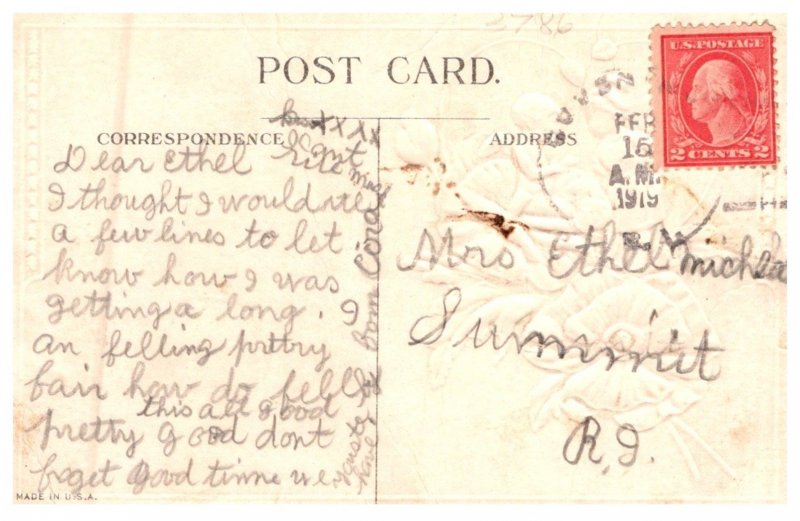 2786
POST CARD.
U.S. POSTAGE
2 CENTS 2
FEB
15
A.M.
1919
CORRESPONDENCE
ADDRESS
XX XX
Dear Ethel
I thought I would
a few lines to let
know how I was
getting a long. I
an felling prettry
fair how do fell
this all good
pretty good dont
forget good time we
have
from Cora
Mrs Ethel
Summit
R.I.
MADE IN U.S.A.